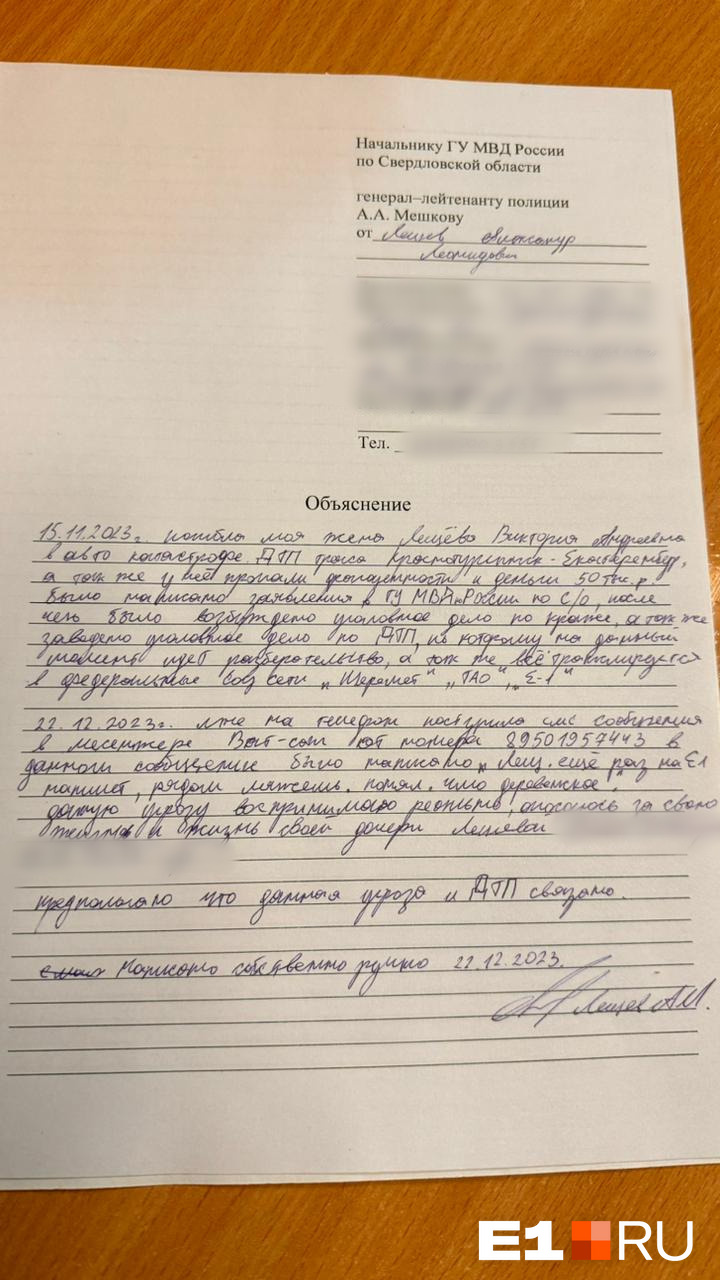 Начальнику ГУ МВД России
по Свердловской области
генерал–лейтенанту полиции
А.А. Мешкову
от Лещев Александр
Леонидович
Тел.
Объяснение
15.11.2023г. погибла моя жена Лещёва Виктория Андреевна
в авто катастрофе ДТП трасса Краснотурьинск-Екатеренбург,
а так же у неё пропали драгоценности и деньги 50 тыс.р.
было написано заявления в ГУ МВД России по С/О, после
чего было возбуждено уголовное дело по краже, а так же
заведено уголовное дело по ДТП, по которому на данный
момент идет разберательство, а так же всё транслируется
в федеральные соц сети „Шеремет" „ТАО", „Е-1"
22.12.2023г. мне на телефон поступило смс сообщения
в месенжере Ватсап от номера 89501957443 в
данном сообщение было написано „Лещ. ещё раз на Е1
напишет, рядом ляжешь. понял. чмо деревенское."
данную угрозу воспринимаю реально, опасаюсь за свою
жизнь и жизнь своей дочери Лещевой
предполагаю что данная угроза и ДТП связано.
Написано собственно ручно 22.12.2023.
Лещев А.Л.
E1 RU